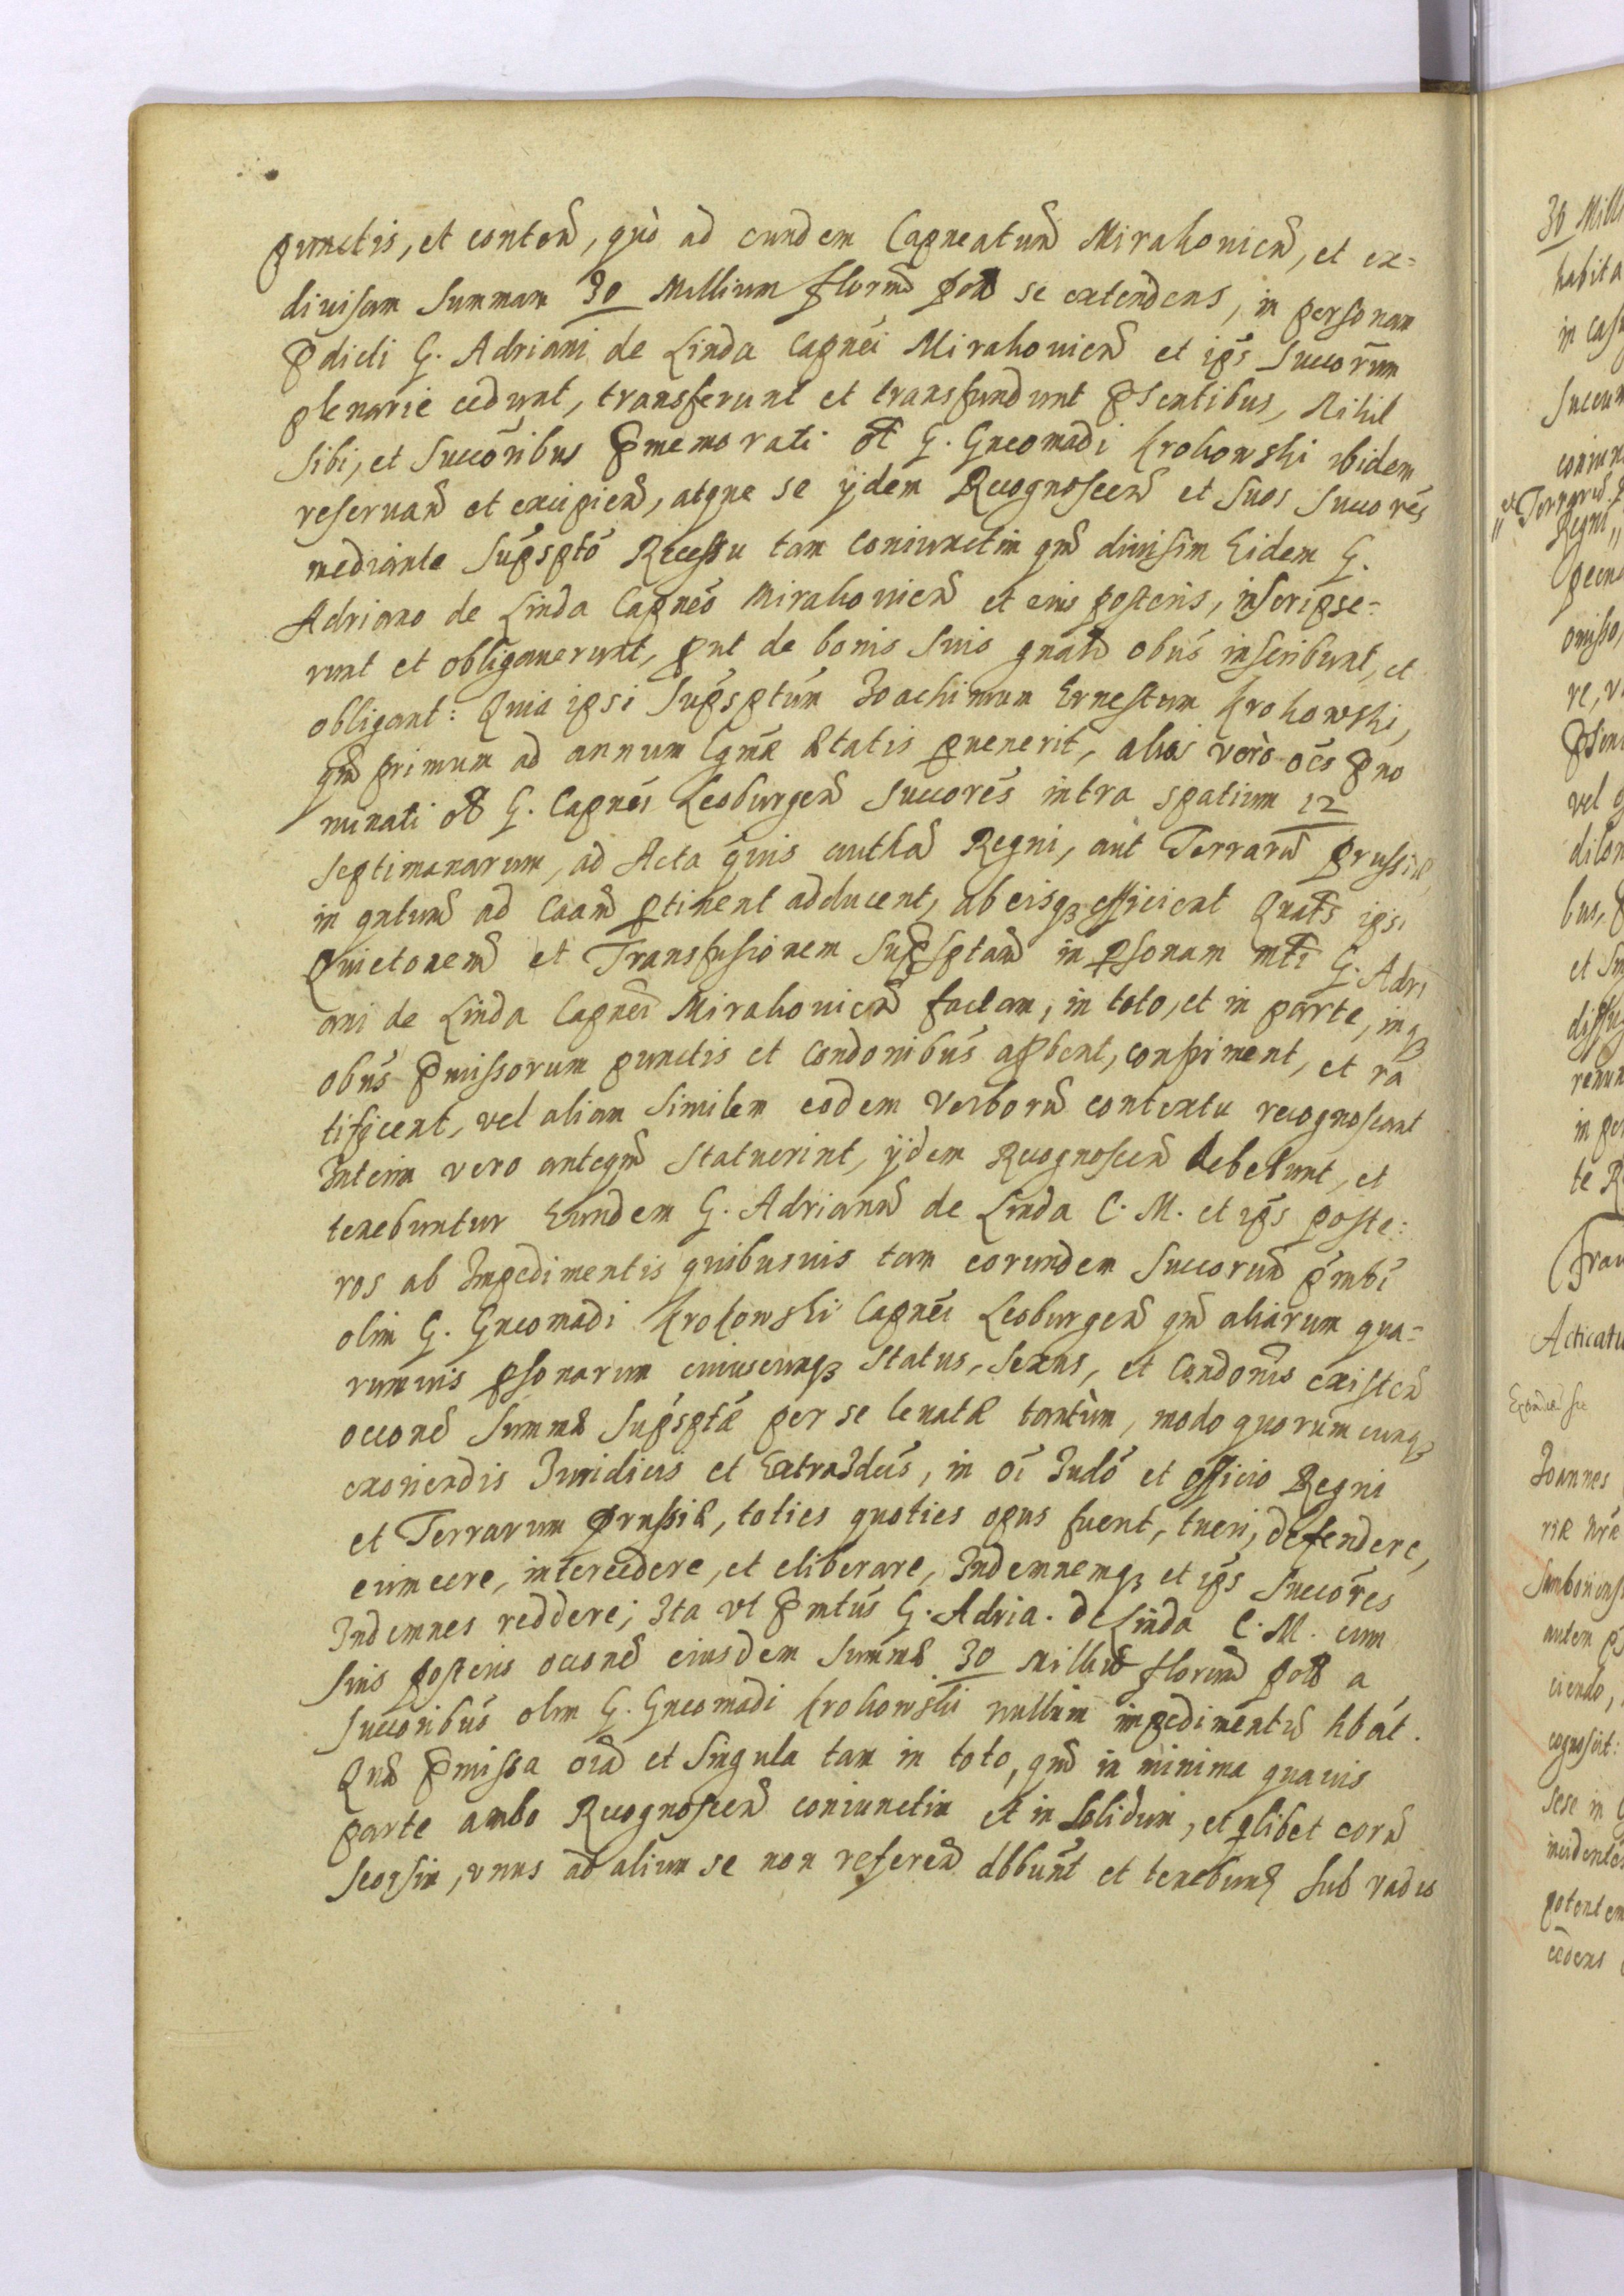 punctis, et conten̄, quò ad eundem Capneatum̄ Mirakouien̄, et ex=
diuisam Summam 30 Millium floren̄ pol̄ se extendens, in personam
p̄dicti G. Adriani de Linda Capnēi Mirakouien̄ et ip̄s Succorūm
plenariè cedunt, transferunt et transfundunt p̄sentibus, Nihil
Sibi, et Succōribus p̄memorati ol̄ G. Gneomadi Krokowski ibidem
reseruan̄ et excipien̄, atque se ijdem Recognoscen̄ et Suos Succorēs
mediante Sup̄sptō Recessu tam coniunctim qm̄ diuisim Eidem G.
Adriano de Linda Capnēo Mirakouien̄ et eius posteris, inscripse=
runt et obligauerunt, p̄ut de bonis Suis gnalr̄ obūs inscribunt, et
obligant: Quia ipsi Sup̄sptūm Joachimum Ernestum Krokowski,
qm̄ primum ad annum Lgm̄æ Ætatis p̄uenerit, alios verò oēs p̄no
minati ol̄ G. Capnēi Leoburgen̄ Succorēs intra spatium 12
Septimanarum, ad Acta q̄uis authen̄ Regni, aut Terrarum̄ Prussiæ,
in qntum̄ ad Caam̄ p̄tinent adducent, ab eisq3 efficient Quats̄ ipsi
Quietonem̄ et Transfusionem Sup̄sptam̄ in p̄sonam mtī G. Adri
ani de Linda Capnēi Mirakouien̄ factam, in toto, et in parte, inq3
obūs p̄missorum punctis et Condonibūs app̄bent, confirment, et ra
tificent, vel aliam Similem eodem Verborum̄ contextu recognoscant
Interim vero anteqm̄ Statuerint, ijdem Recognoscen̄ debebunt, et
tenebuntur Eundem G. Adrianum̄ de Linda C. M. et ip̄s poste:
ros ab Impedimentis quibusuis tam eorundem Succorum̄ p̄mbī
olim G. Gneomadi Krokowski Capnēi Leoburgen̄ qm̄ aliarum qua=
rumuis p̄sonarum cuiuscunq3 Status, Sexus, et Condonis̄ existen̄
occonē Summæ Sup̄sptæ per se leuatæ tantùm, modo quorumcunq3
exoriendis Juridicis et ExtraJdcīs, in oī Judō et officio Regni
et Terrarum Prussiæ, toties quoties opus fuerit, tueri, defendere,
euincere, intercedere, et eliberare, Indemnemq3 et ip̄s Succōres
Indemnes reddere; Ita vt p̄mtūs G. Adria. de Linda C. M. cum
Suis posteris occonē eiusdem Summæ 30 Millium̄ florenum̄ pol̄ a
Succoribūs olim G. Gneomadi Krokowski nullum impedimentum̄ hbāt.
Quæ p̄missa oia̅ et Singula tam in toto, qm̄ in minima quauis
parte ambo Recognoscen̄ coniunctim et in Solidum, et q̄libet eorum̄
Seorsim, vnus ad alium se non referen̄ dbbunt̄ et tenebunt̄ Sub vadio